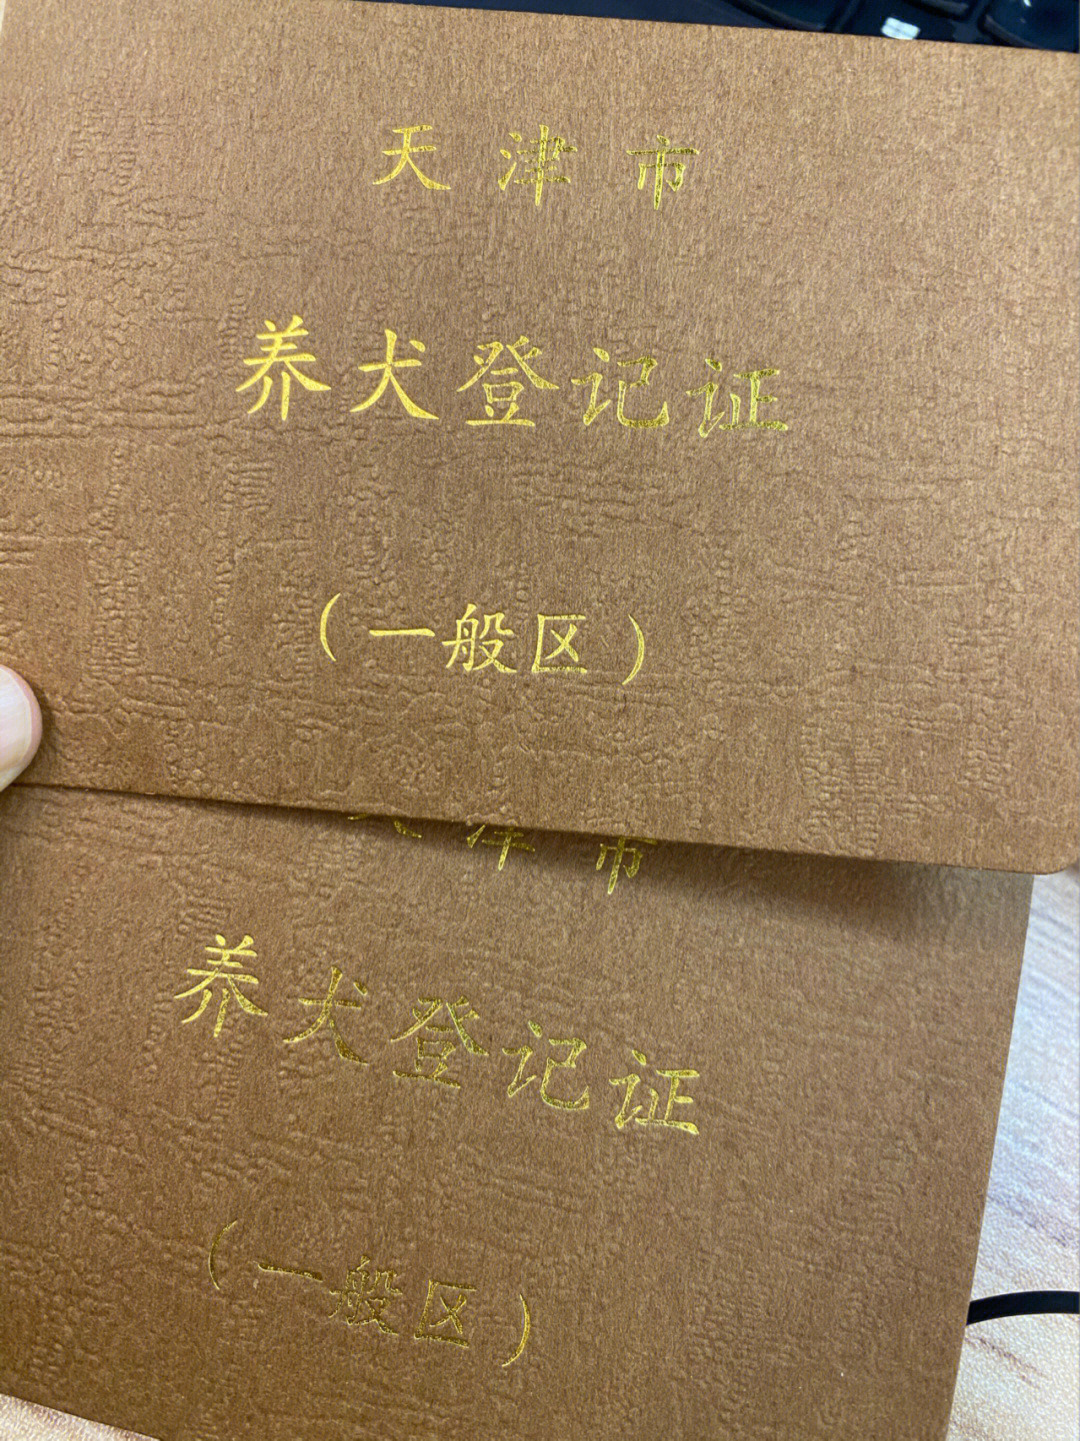 天津市
养犬登记证
（一般区）
天津市
养犬登记证
（一般区）